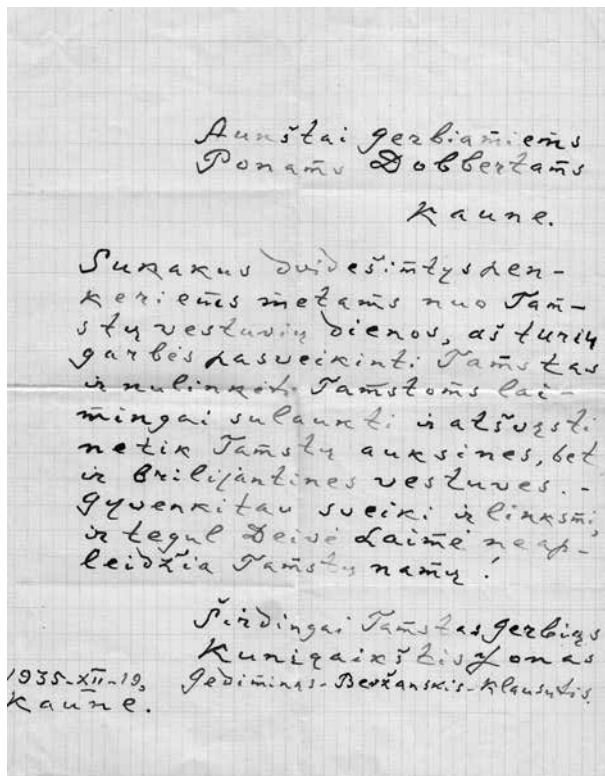 Aukštai gerbiamiems
Ponams Dobbertams
Kaune.
Sukakus dvidešimtyspen-
keriems metams nuo Tam-
stų vestuvių dienos, aš turių
garbės pasveikinti Tamstas
ir nulinkėti Tamstoms lai-
mingai sulaukti ir atšvęsti
netik Tamstų auksines, bet
ir brilijantines vestuves. -
Gyvenkitau sveiki ir linksmi,
ir tegul Deivė Laimė neap-
leidžia Tamstų namų!
Širdingai Tamstas gerbiąs
Kunigaikštis Jonas
Gediminas-Beržanskis-Klausutis.
1935-XII-19,
Kaune.